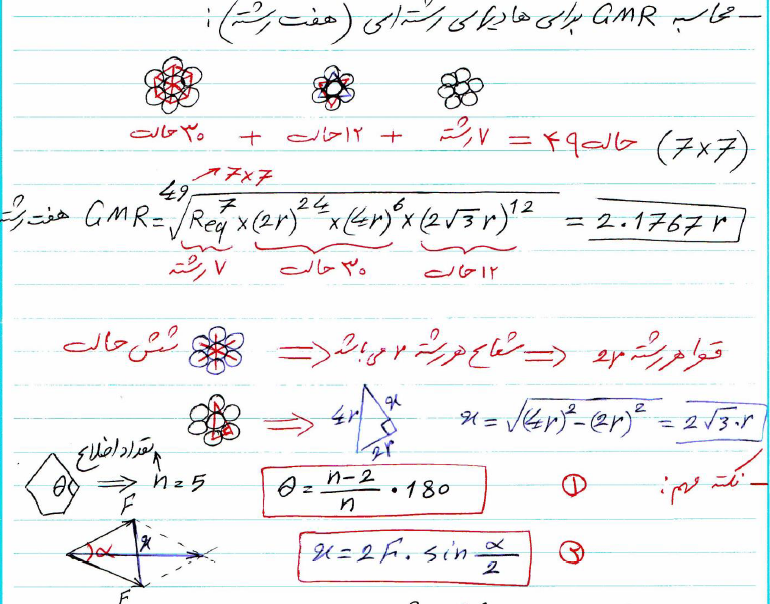 - محاسبه GMR برای هادیهای رشته‌ای (هفت رشته):
۳۰ حالت + ۱۲ حالت + ۷ رشته = ۴۹ حالت (7×7)
7×7
هفت رشته GMR = ⁴⁹√(Req⁷ × (2r)²⁴ × (4r)⁶ × (2√3 r)¹²) = 2.1767 r
۷ رشته ۳۰ حالت ۱۲ حالت
قطر هر رشته 2r ⇐ شعاع هر رشته r می باشد ⇐ شش حالت
⇒ 4r x 2r x = √((4r)² - (2r)²) = 2√3·r
- نکته مهم:
تعداد اضلاع
θ ⇒ n = 5 θ = n-2/n · 180 ①
F α x F x = 2F. sin α/2 ②